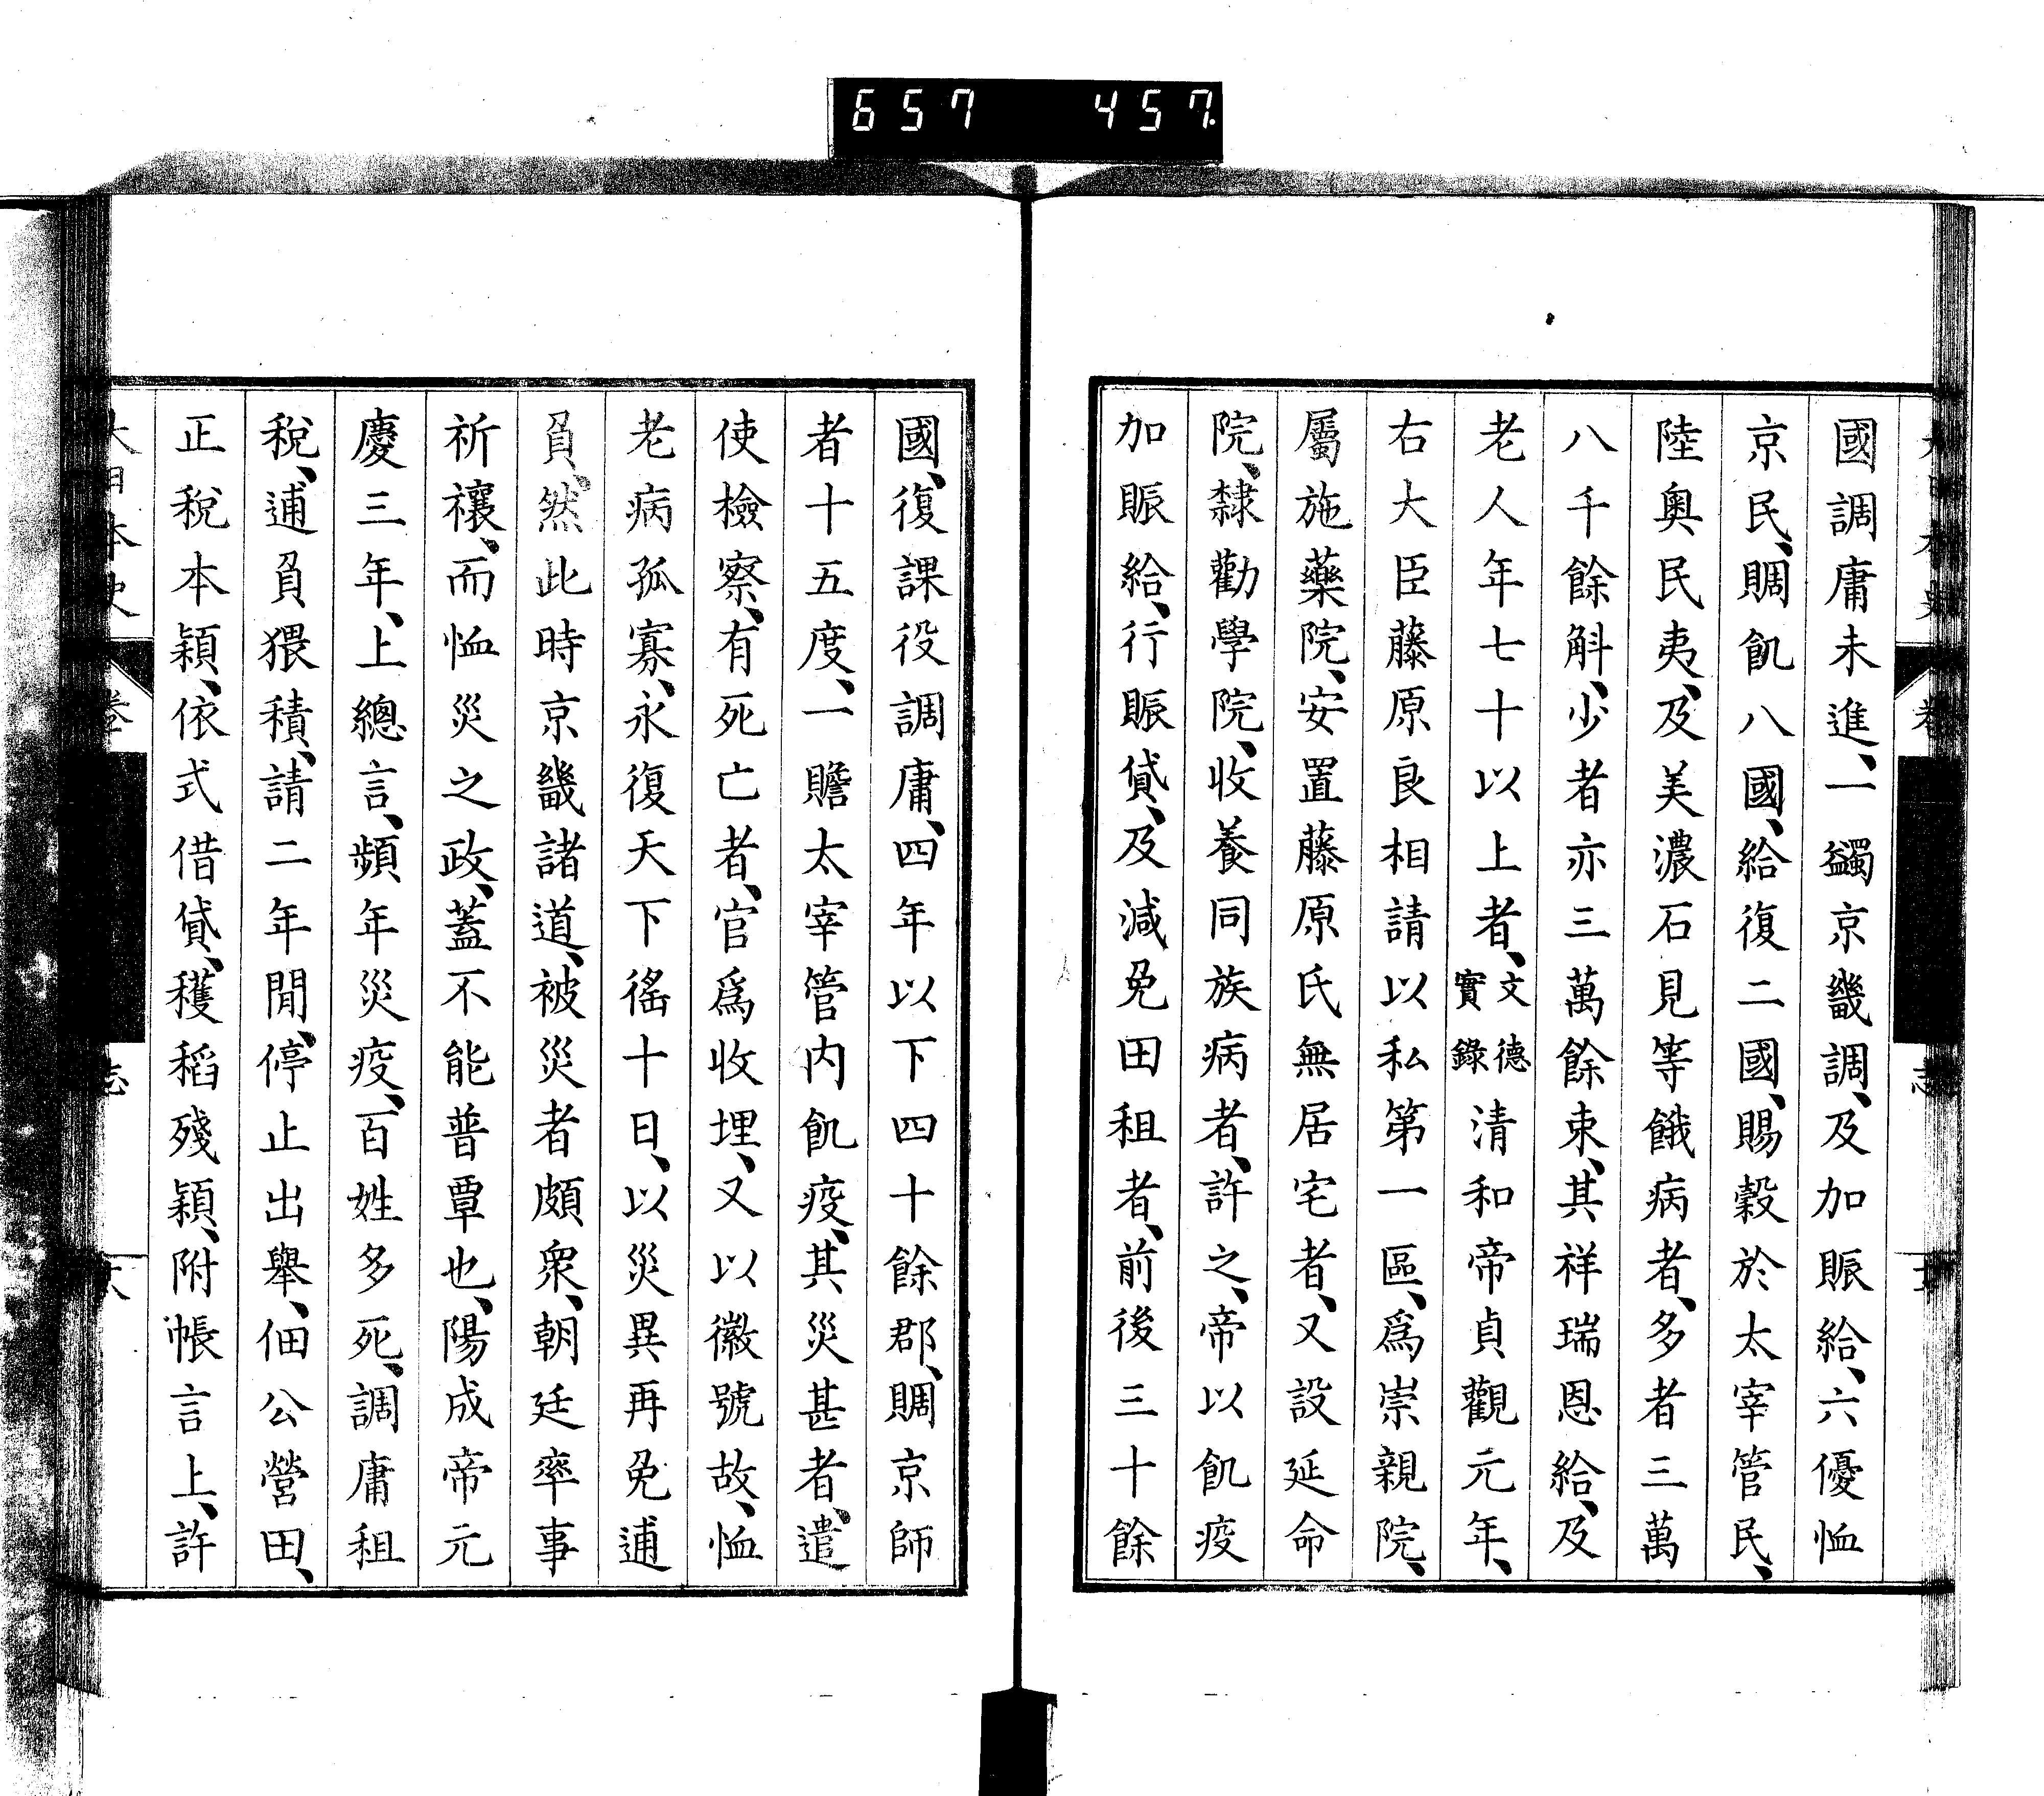 657 457
國調庸未進、一蠲京畿調、及加賑給、六優恤
京民、賙飢八國、給復二國、賜穀於太宰管民、
陸奧民夷、及美濃石見等餓病者、多者三萬
八千餘斛、少者亦三萬餘束、其祥瑞恩給、及
老人年七十以上者、文德實錄清和帝貞觀元年、
右大臣藤原良相請以私第一區、爲崇親院、
屬施藥院、安置藤原氏無居宅者、又設延命
院、隸勸學院、收養同族病者、許之、帝以飢疫
加賑給、行賑貸、及減免田租者、前後三十餘
國、復課役調庸、四年以下四十餘郡、賙京師
者十五度、一贍太宰管内飢疫、其災甚者、遣
使檢察、有死亡者、官爲收埋、又以徽號故、恤
老病孤寡、永復天下徭十日、以災異再免逋
負、然此時京畿諸道、被災者頗衆、朝廷率事
祈禳、而恤災之政、蓋不能普覃也、陽成帝元
慶三年、上總言、頻年災疫、百姓多死、調庸租
稅、逋負猥積、請二年閒、停止出舉、佃公營田、
正稅本穎、依式借貸、穫稻殘穎、附帳言上、許
大日本史 卷 志